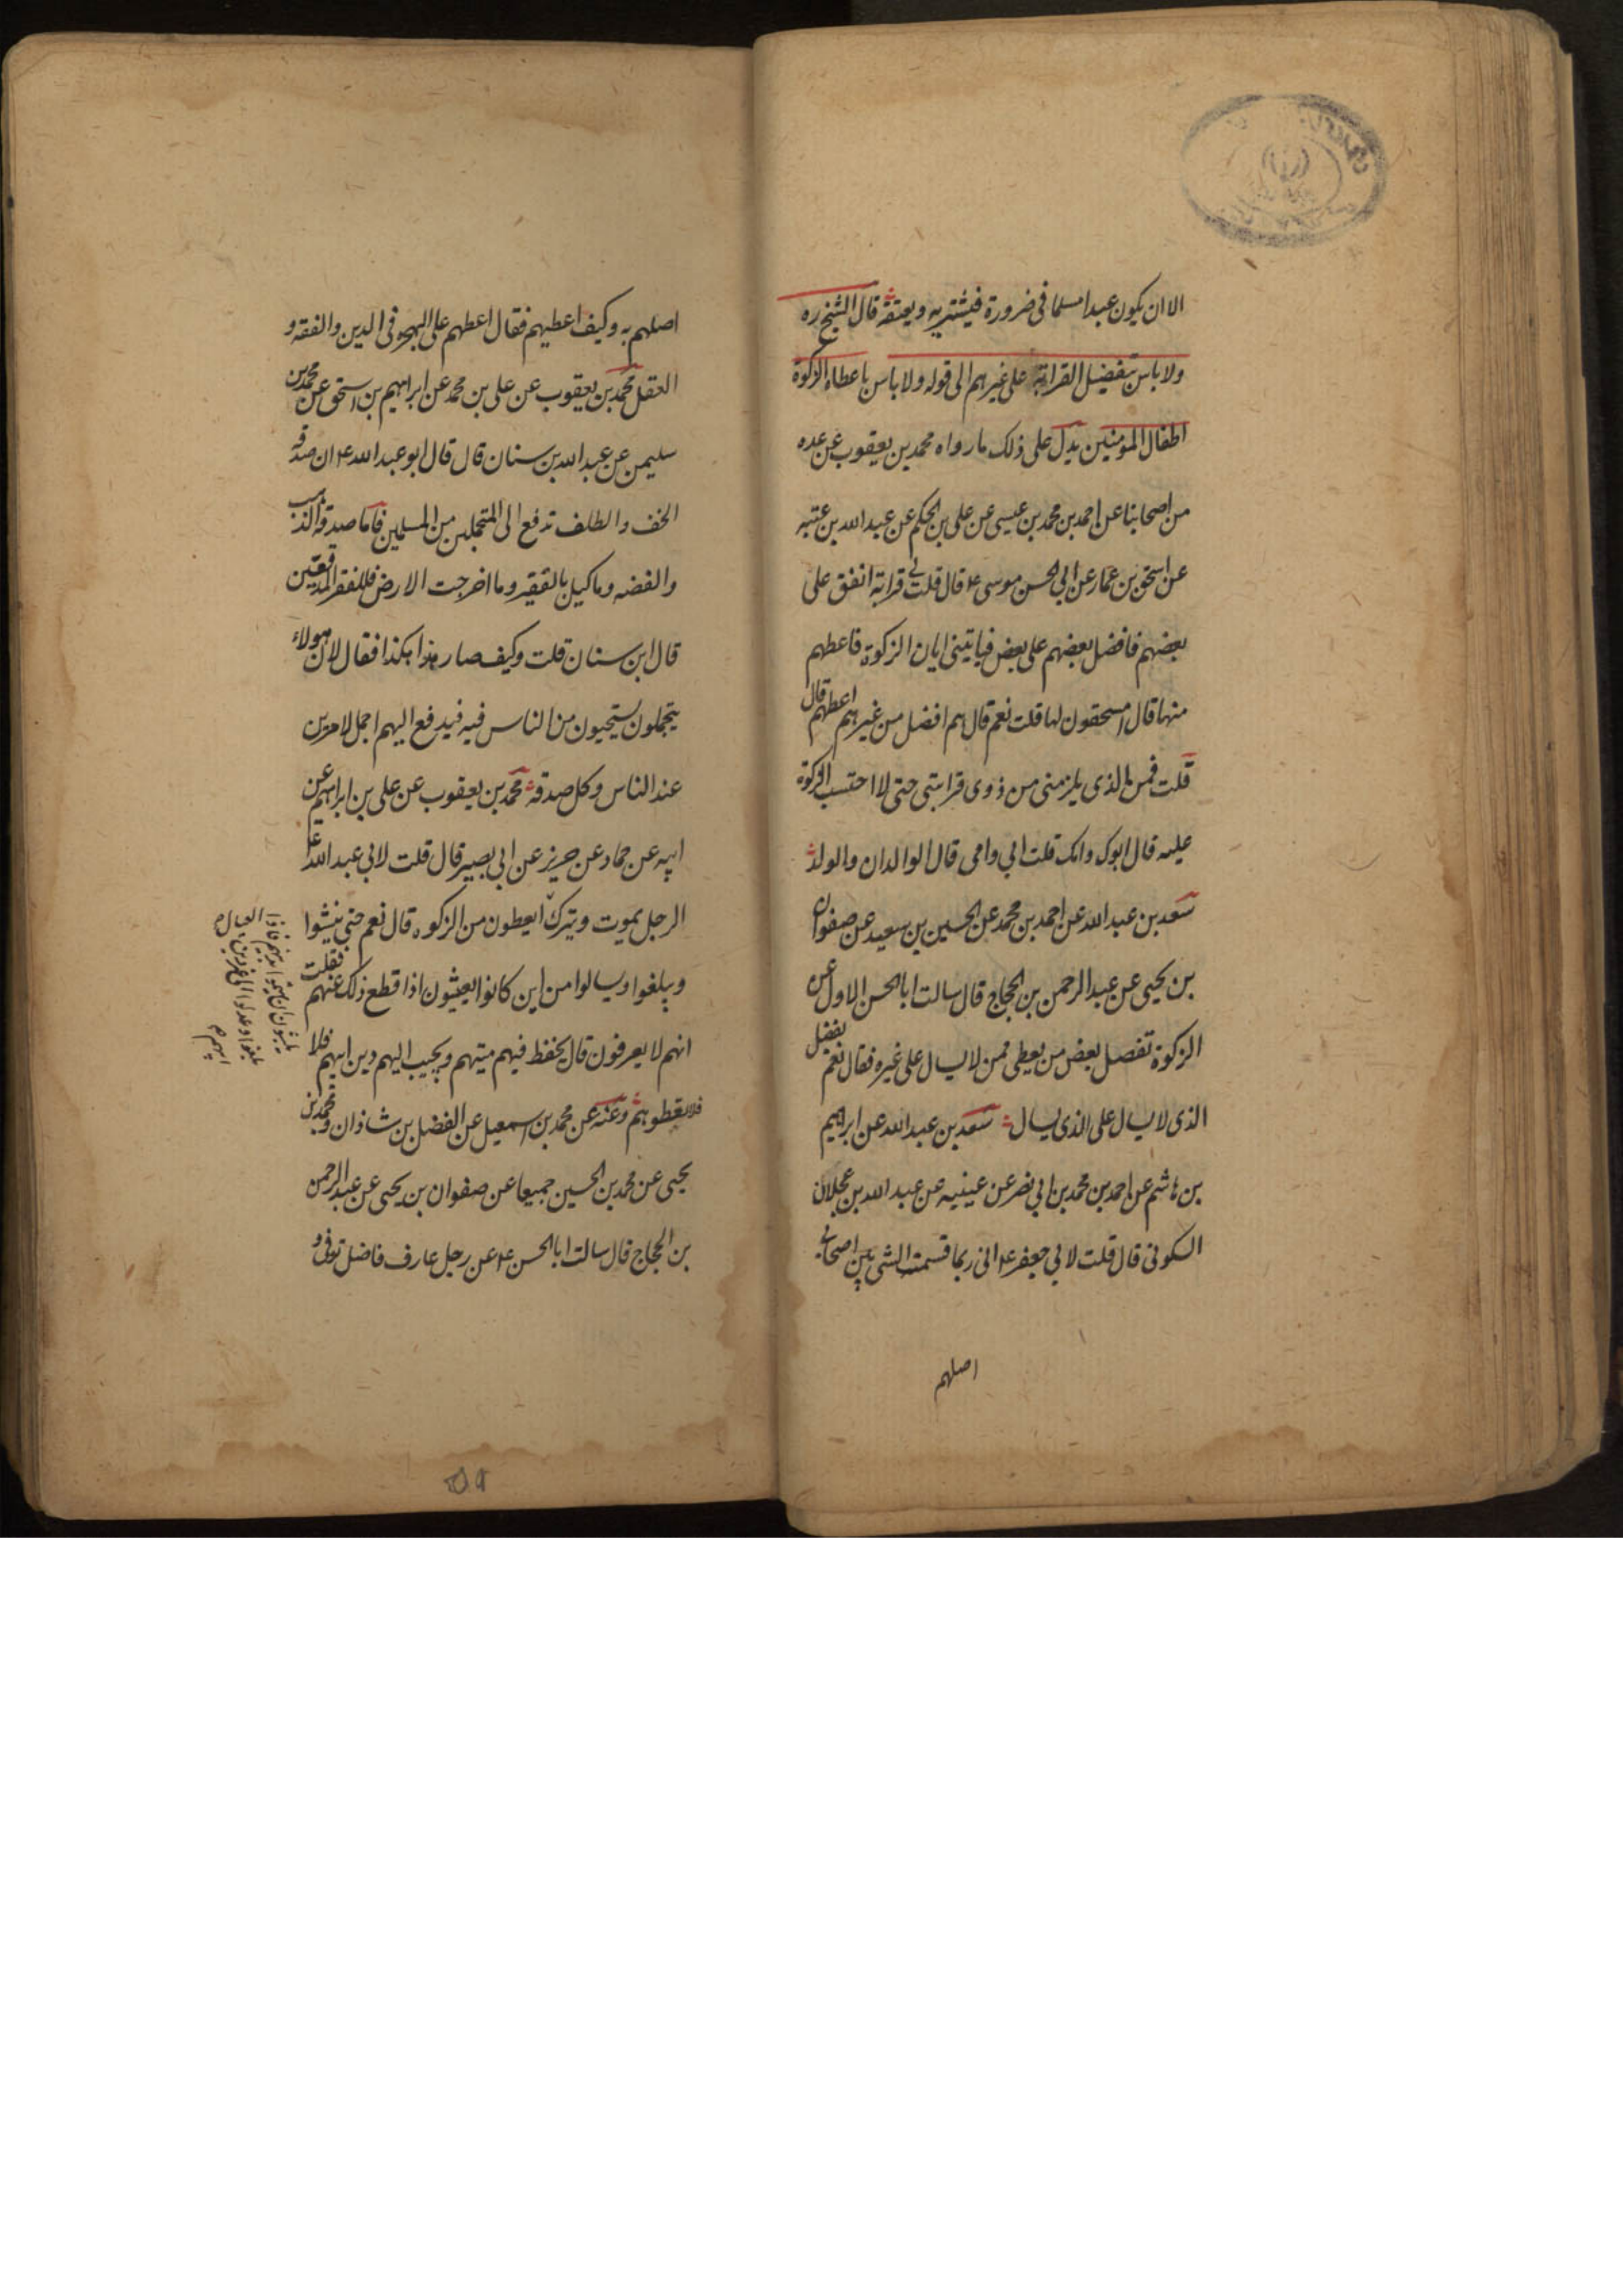 الا ان يكون عبدا مسلما فى ضرورة فيشتريه ويعتقه قال الشيخ ره
ولا باس بتفضيل القرابة على غيرهم الى قوله ولا باس باعطاء الزكوة
اطفال المومنين يدل على ذلك ما رواه محمد بن يعقوب عن عده
من اصحابنا عن احمد بن محمد بن عيسى عن على بن الحكم عن عبد الله بن عتبه
عن اسحق بن عمار عن ابى الحسن موسى ع قال قلت لى قرابة انفق على
بعضهم فافضل بعضهم على بعض فياتينى ابان الزكوة فاعطهم
منها قال امستحقون لها قلت نعم قال هم افضل من غيرهم اعطهم قال
قلت فمن الذى يلزمنى من ذوى قرابتى حتى لا احتسب الزكوة
عليه قال ابوك وامك قلت ابى وامى قال الوالدان والولد
سعد بن عبد الله عن احمد بن محمد عن الحسين بن سعيد عن صفوان
بن يحيى عن عبد الرحمن بن الحجاج قال سالت ابا الحسن الاول عن
الزكوة تفضل بعض من يعطى ممن لا يسال على غيره فقال نعم يفضل
الذى لا يسال على الذى يسال سعد بن عبد الله عن ابراهيم
بن هاشم عن احمد بن محمد بن ابى نصر عن عيينه عن عبد الله بن عجلان
السكونى قال قلت لابى جعفر ع انى ربما قسمت الشى بين اصحابى
اصلهم
اصلهم به وكيف اعطيهم فقال اعطهم على الهجره فى الدين والفقه و
العقل محمد بن يعقوب عن على بن محمد عن ابراهيم بن اسحق عن محمد بن
سليمن عن عبد الله بن سنان قال قال ابو عبد الله ع ان صدقه
الخف والظلف تدفع الى المتجملين من المسلمين فاما صدقة الذهب
والفضه وما كيل بالقفيز وما اخرجت الارض فللفقرا المدقعين
قال ابن سنان قلت وكيف صار هذا هكذا فقال لان هولاء
يتجملون يستحيون من الناس فيه فيدفع اليهم اجمل الامرين
عند الناس وكل صدقه محمد بن يعقوب عن على بن ابراهيم عن
ابيه عن حماد عن حريز عن ابى بصير قال قلت لابى عبد الله ع
الرجل يموت ويترك ايعطون من الزكوه قال نعم حتى ينشوا
ويبلغوا ويسالوا من اين كانوا يعيشون اذا قطع ذلك عنهم فقلت
انهم لا يعرفون قال يحفظ فيهم ميتهم ويحبب اليهم دين ابيهم فلا
فلا تعطوهم وعنه عن محمد بن اسمعيل عن الفضل بن شاذان ومحمد بن
يحيى عن محمد بن الحسين جميعا عن صفوان بن يحيى عن عبد الرحمن
بن الحجاج قال سالت ابا الحسن ع عن رجل عارف فاضل توفى و
العيال
يلبثون ان يهتموا بدين ابيهم فاذا
بلغوا وعدلوا الى غير دين
ابيهم